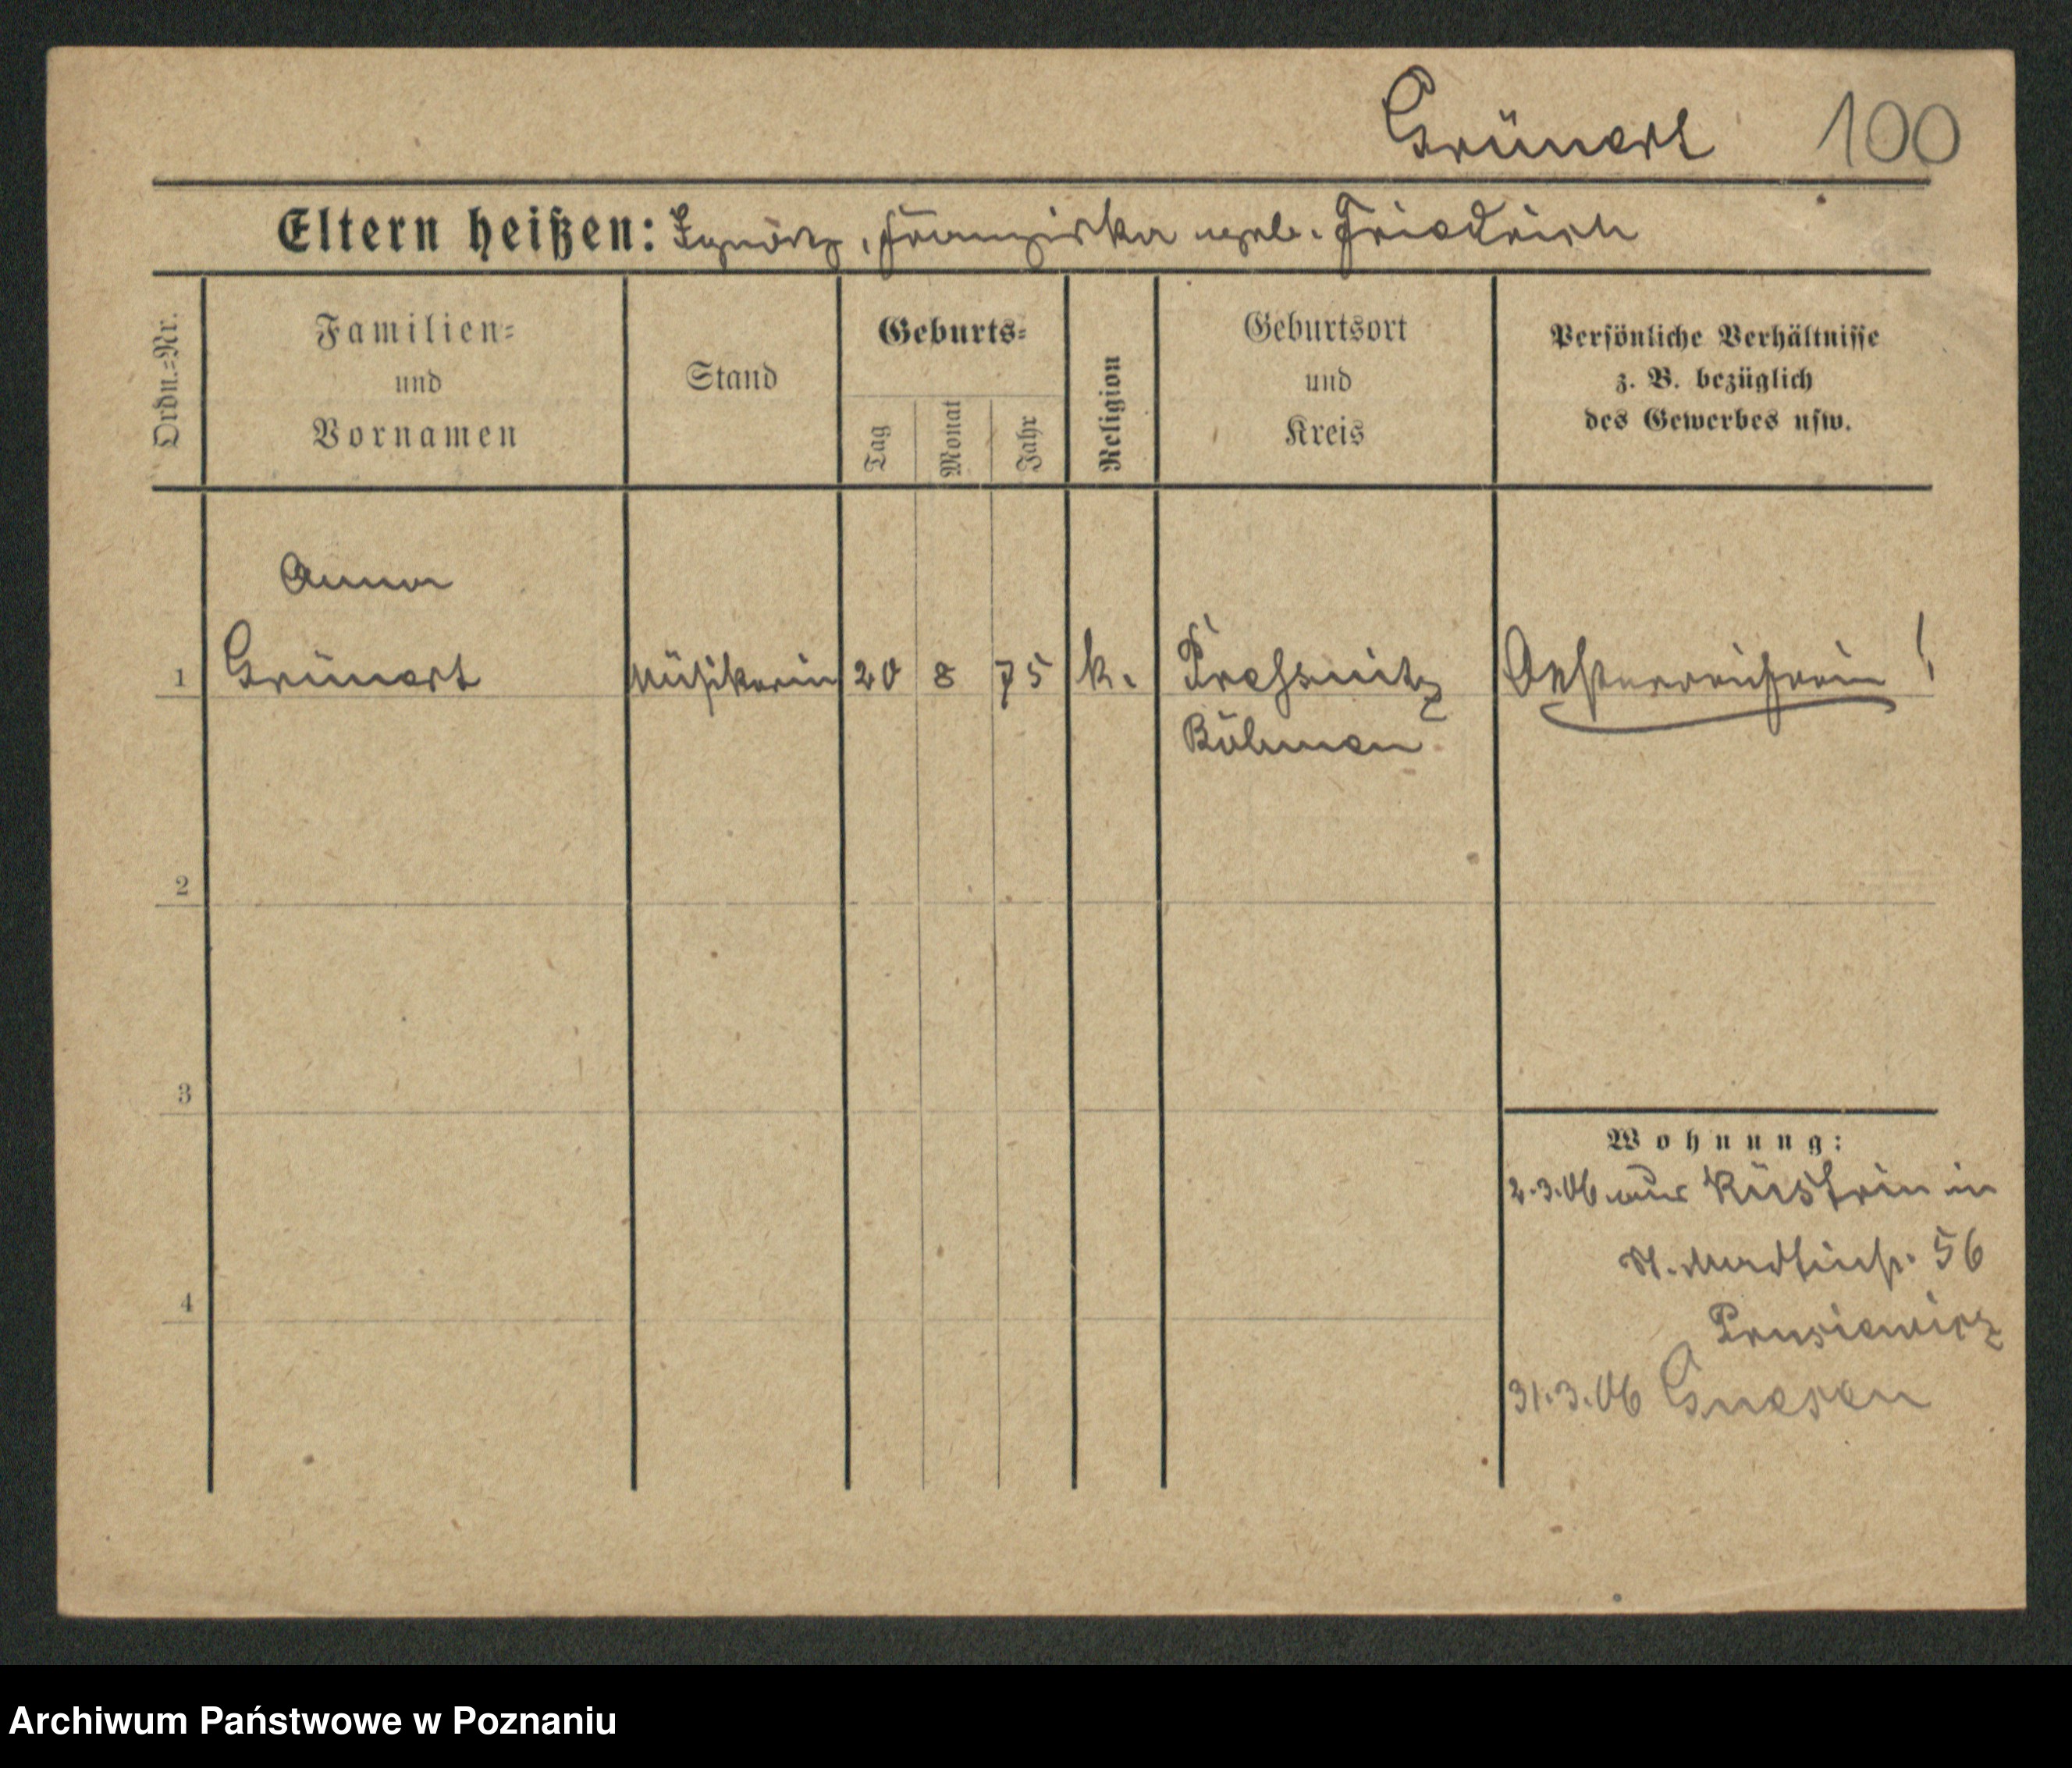 Grünert 100
Eltern heißen: Ignatz, Franziska geb. Friedrich
Ordn.=Nr.
Familien=
und
Vornamen
Stand
Geburts=
Tag
Monat
Jahr
Religion
Geburtsort
und
Kreis
Persönliche Verhältnisse
z. B. bezüglich
des Gewerbes usw.
Anna
1 Grünert Musikerin 20 8 75 k. Pressnitz Oesterreicherin !
Böhmen
2
3
4
Wohnung:
2.3.06 aus Küstrin in
St. Martinstr. 56
Prusiewicz
31.3.06 Gnesen
Archiwum Państwowe w Poznaniu